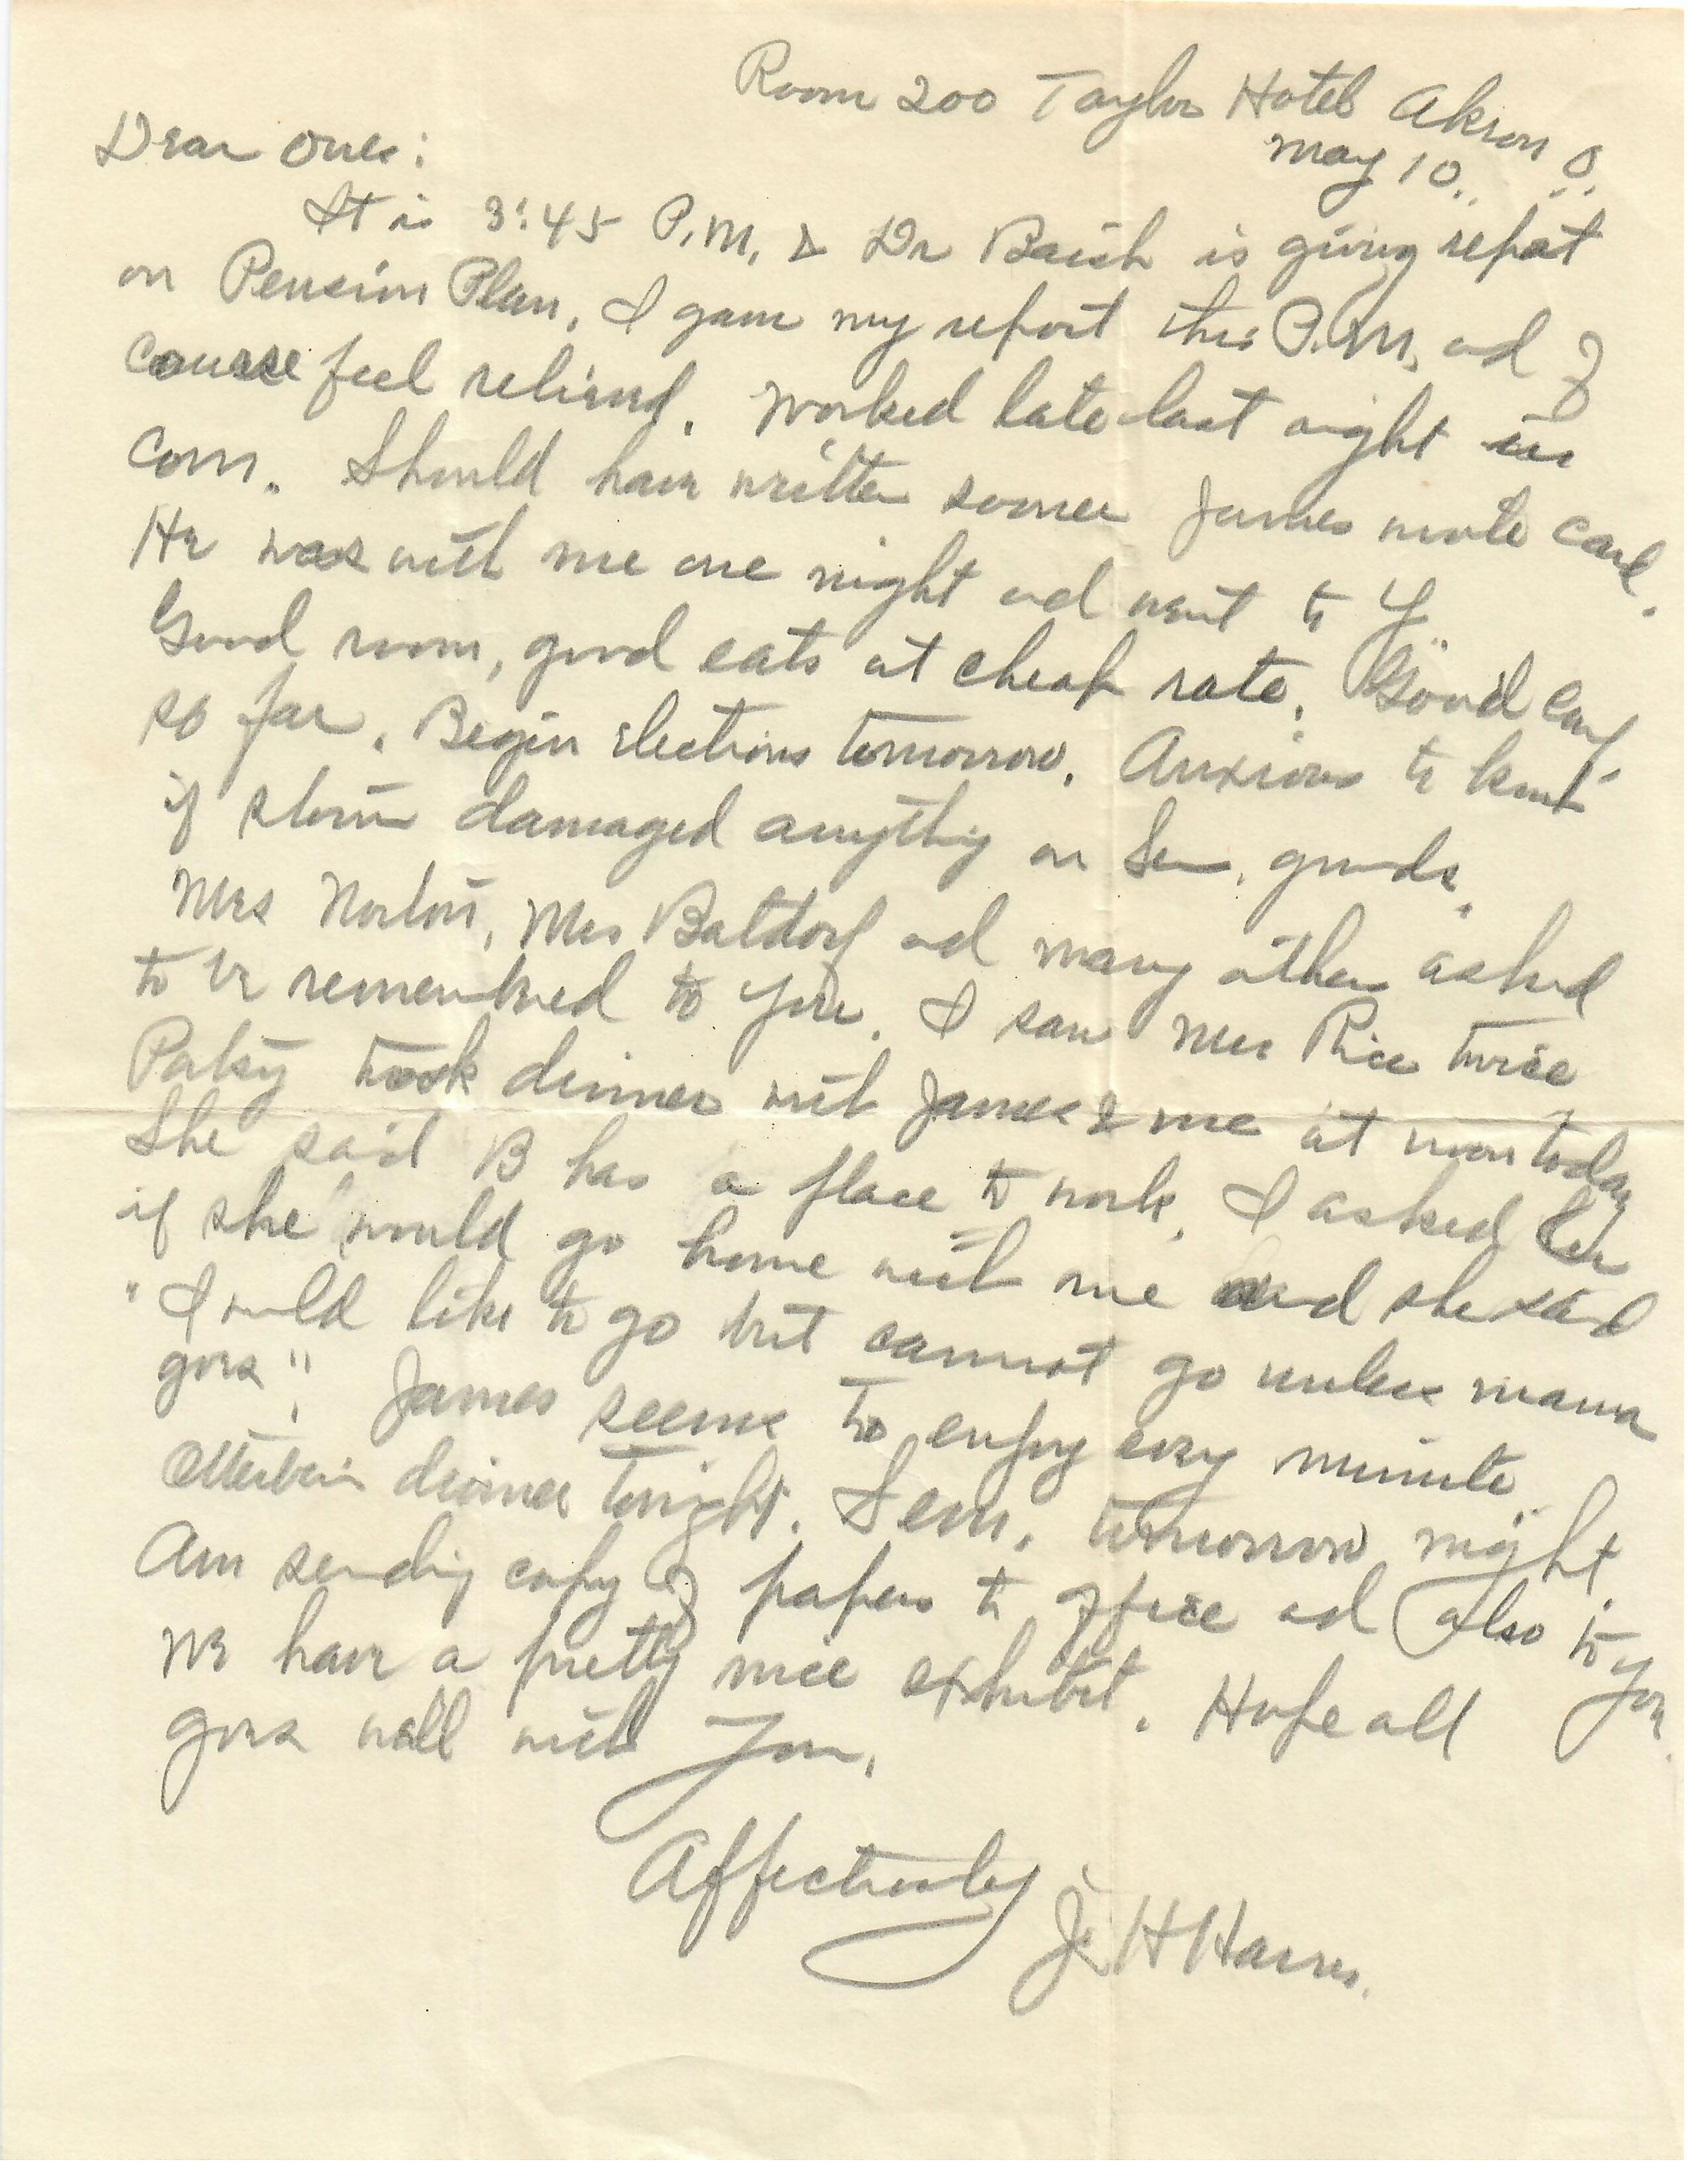 Room 200 Taylor Hotel Akron O.
May 10..
Dear Ones:
It is 3:45 P.M. & Dr Baish is giving report
on Pension Plan. I gave my report this P.M. and of
course feel relieved. Worked late last night in
Com. Should have written sooner James wrote card.
He was with me one night and went to Y..
Good room, good eats at cheap rate. Good Conf.
so far. Begin elections tomorrow. Anxious to know
if storm damaged anything on Sem. grounds.
Mrs Norton, Mrs Batdorf and many others asked
to be remembered to you. I saw Mrs Rice twice
Patsy took dinner with James & me at noon today
She said B has a place to work. I asked her
if she would go home with me and she said
"I would like to go but cannot go unless mama
goes". James seems to enjoy every minute.
Otterbein dinner tonight. Sem. tomorrow night.
Am sending copy of papers to office and also to you.
We have a pretty nice exhibit. Hope all
goes well with you.
Affectionately
J. H Harris.